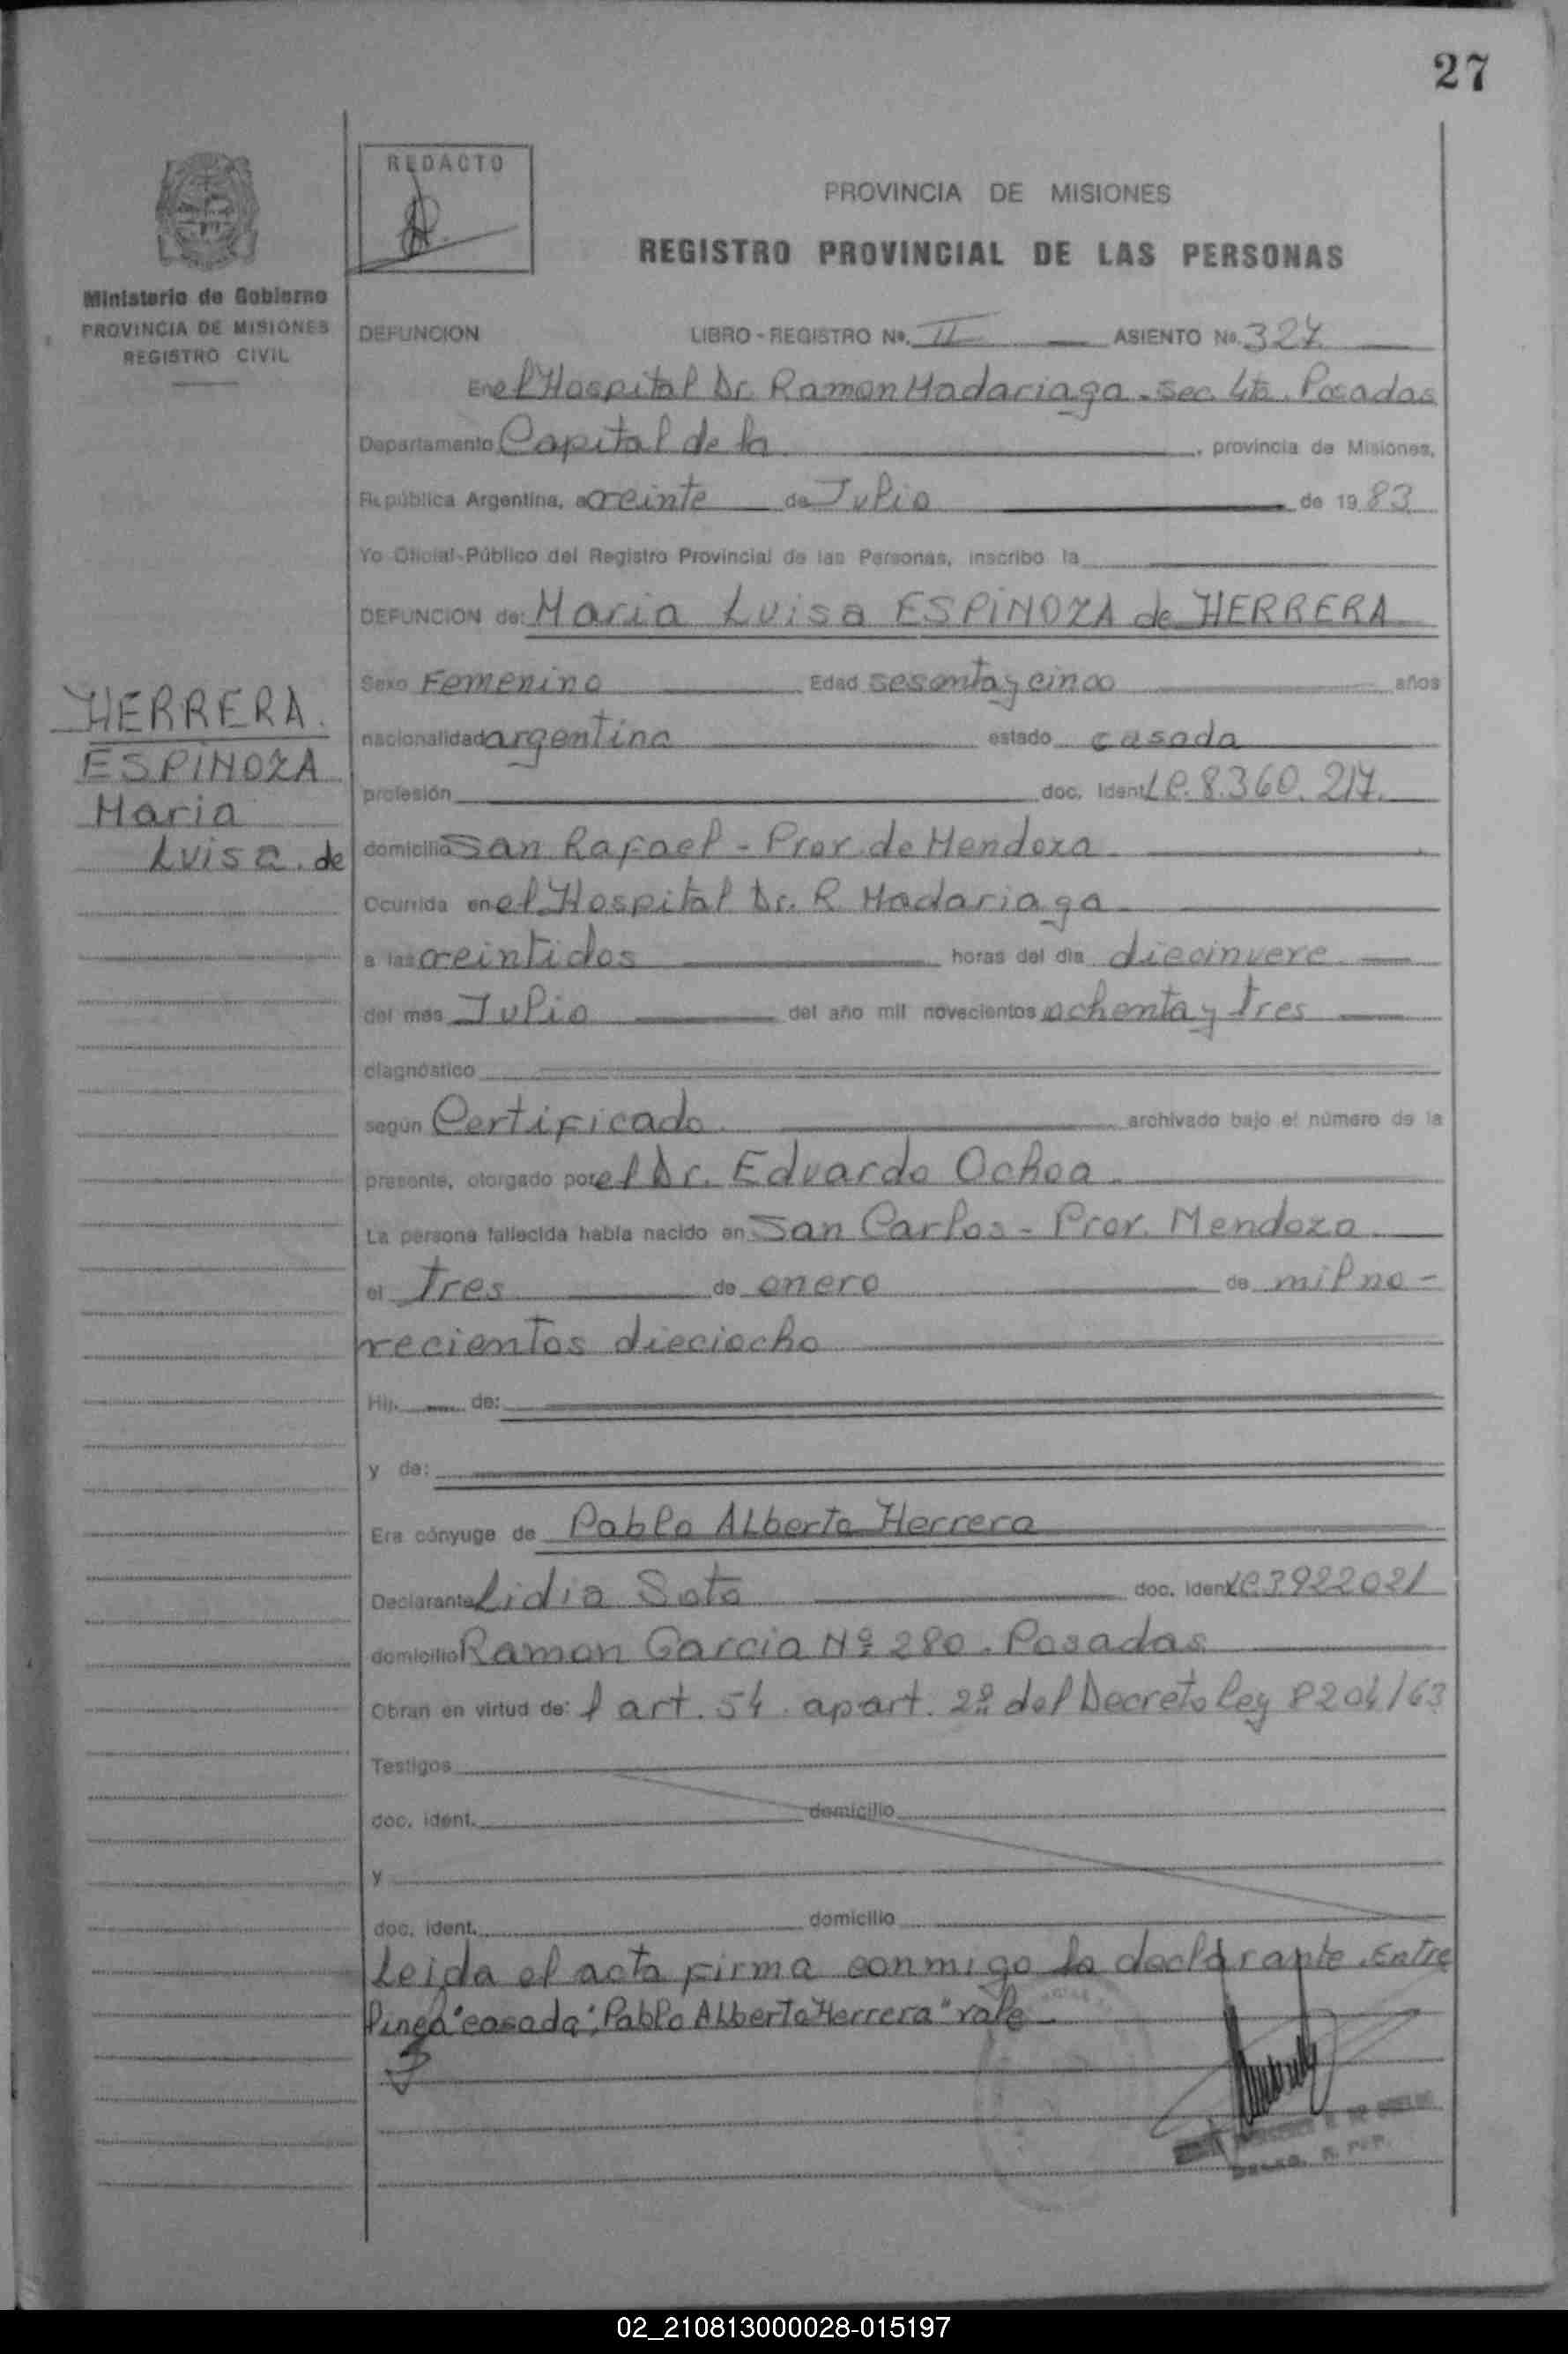 27
REDACTO
PROVINCIA DE MISIONES
REGISTRO PROVINCIAL DE LAS PERSONAS
Ministerio de Gobierno
PROVINCIA DE MISIONES
REGISTRO CIVIL
DEFUNCION LIBRO - REGISTRO No. II ASIENTO No. 327
En el Hospital Dr. Ramon Madariaga - Sec. 4ta. Posadas
Departamento Capital de la , provincia de Misiones,
República Argentina, a veinte de Julio de 1983
Yo Oficial Público del Registro Provincial de las Personas, inscribo la
DEFUNCION de: Maria Luisa ESPINOZA de HERRERA
Sexo Femenino Edad sesenta y cinco años
nacionalidad argentina estado casada
profesión doc. Ident. LC. 8.360.217.
domicilio San Rafael - Prov. de Mendoza
Ocurrida en el Hospital Dr. R Madariaga
a las veintidos horas del día diecinueve
del mes Julio del año mil novecientos ochenta y tres
diagnóstico
según Certificado archivado bajo el número de la
presente, otorgado por el Dr. Eduardo Ochoa
La persona fallecida había nacido en San Carlos - Prov. Mendoza
el tres de enero de mil no-
vecientos dieciocho
Hij. de:
y de:
Era cónyuge de Pablo Alberto Herrera
Declarante Lidia Soto doc. Ident. LC 3922021
domicilio Ramon Garcia Nº 280. Posadas
Obran en virtud de: l art. 54. apart. 2º del Decreto ley 8204/63
Testigos
doc. ident. domicilio
y
doc. ident. domicilio
Leida el acta firma conmigo la declarante. Entre
linea "casada"; Pablo Alberto Herrera" vale
HERRERA.
ESPINOZA
Maria
Luisa. de
02_210813000028-015197